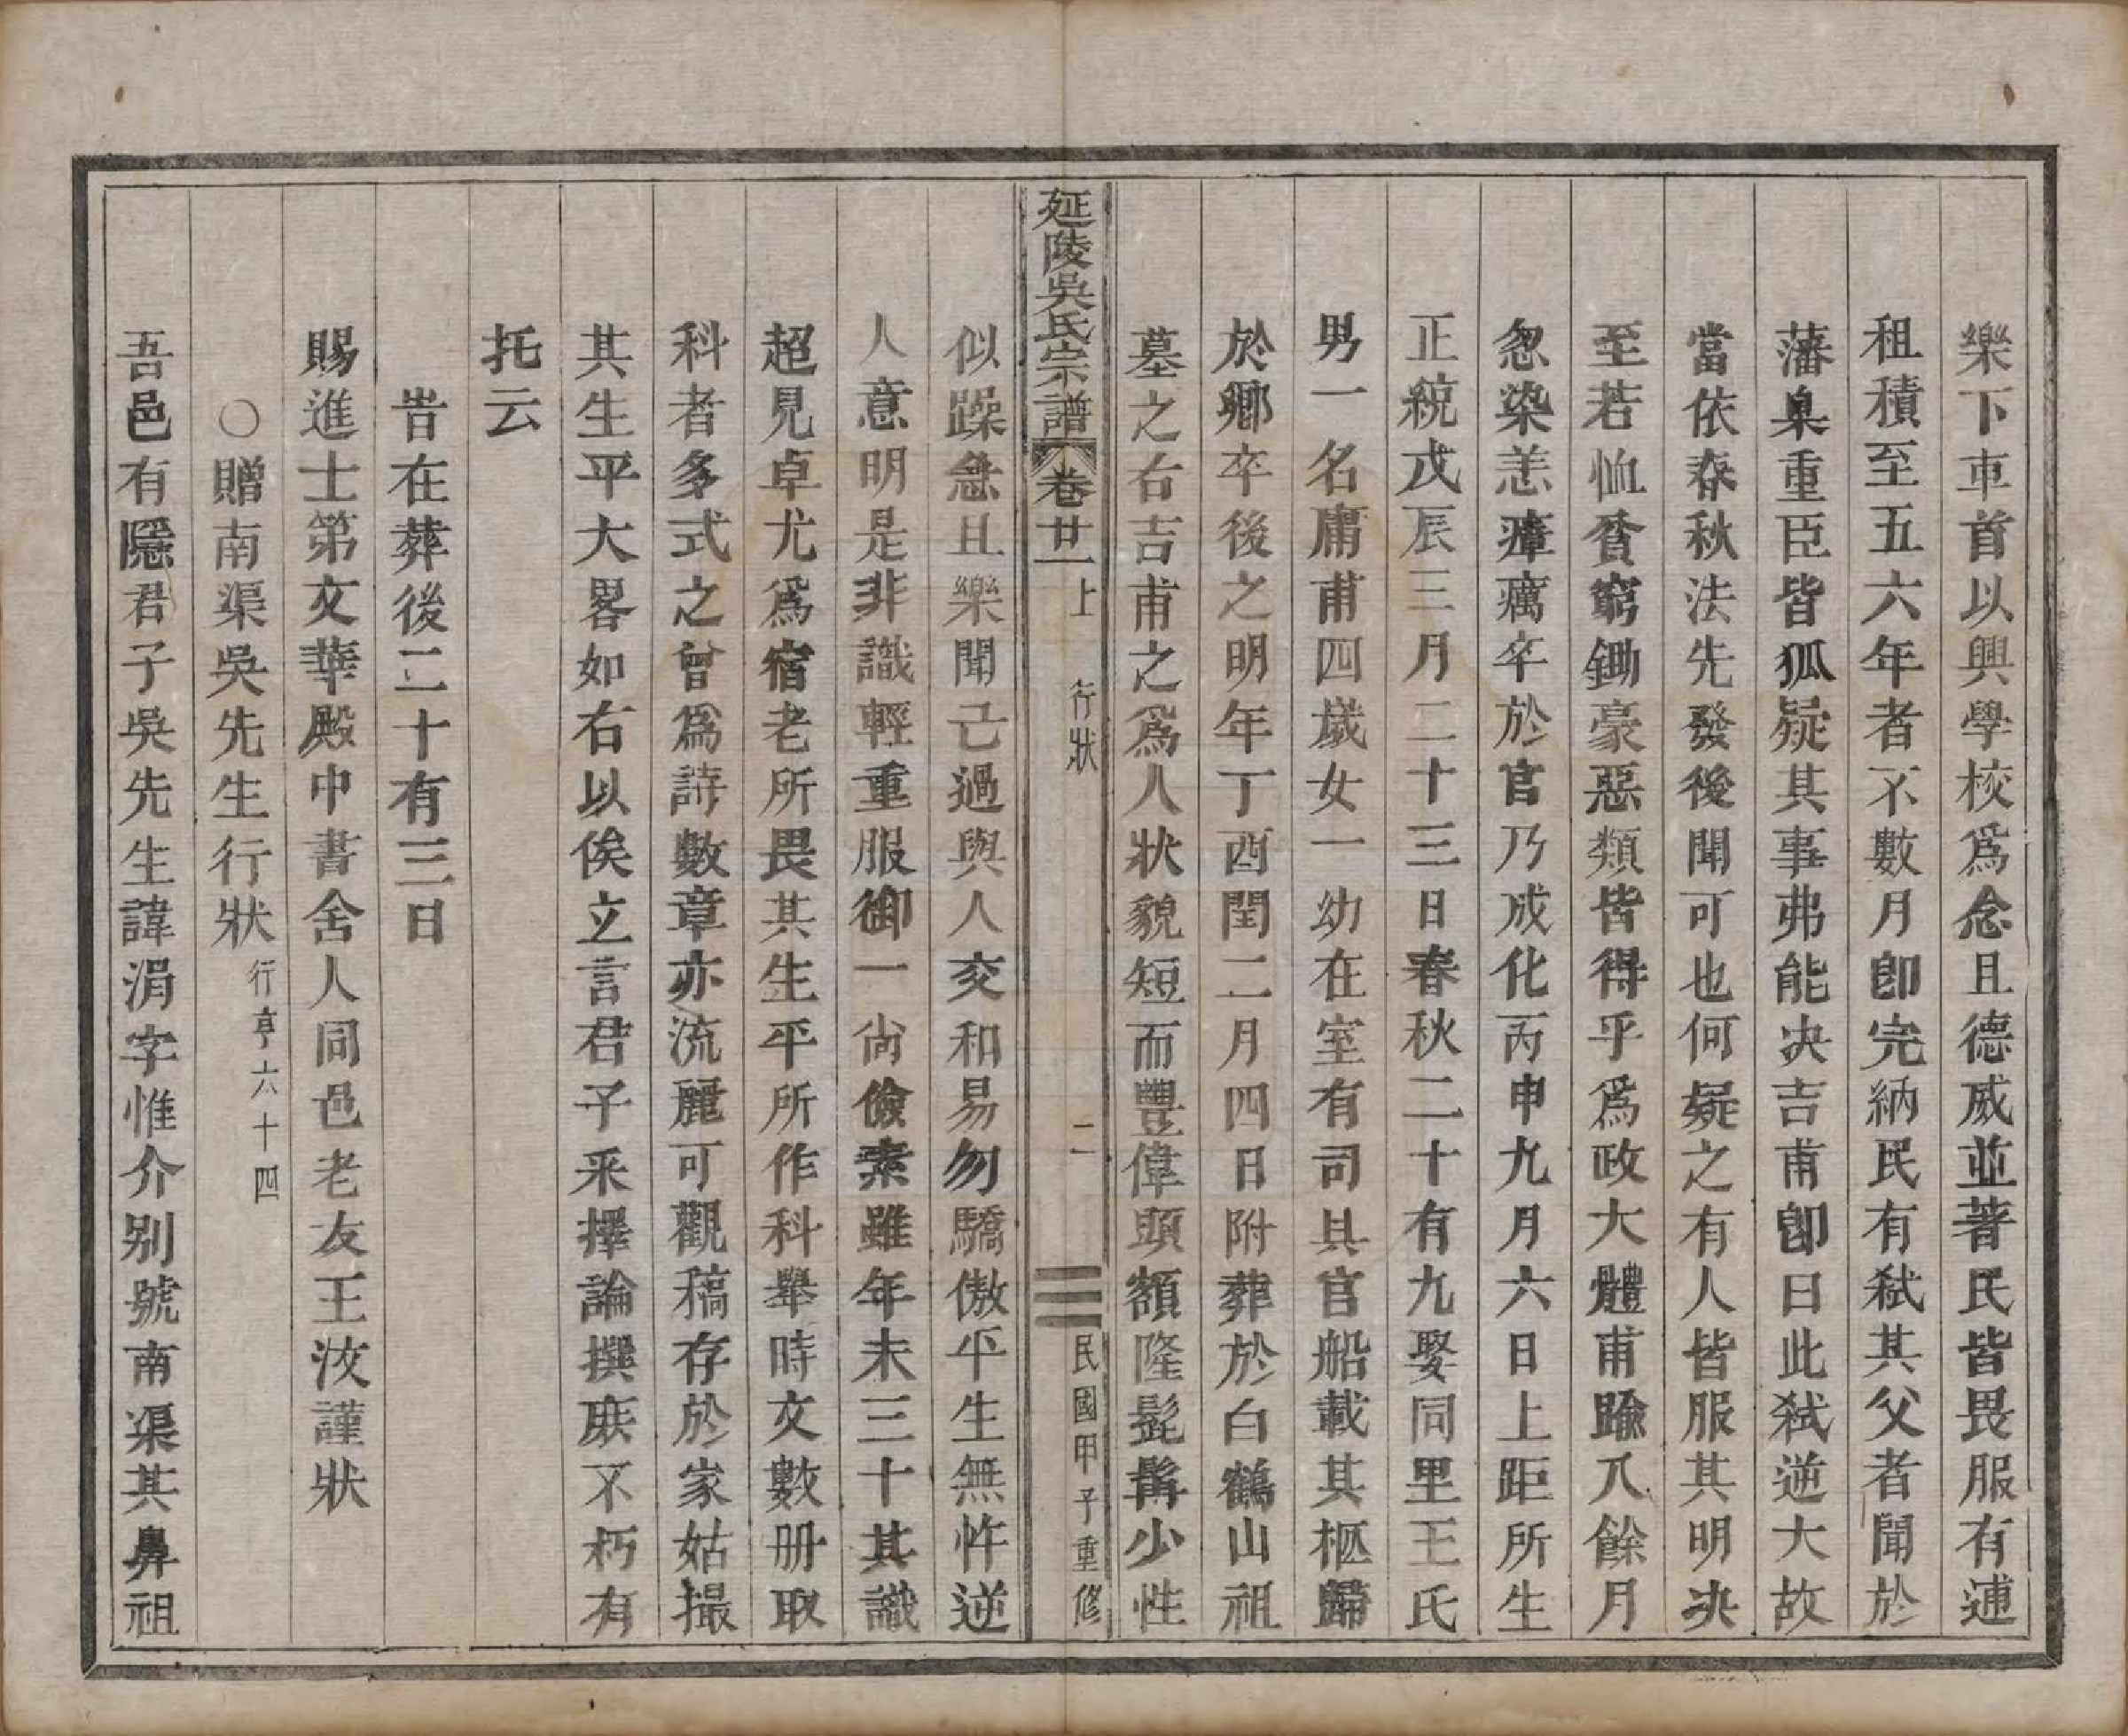 樂下車首以興學校爲念且德威並著民皆畏服有逋
租積至五六年者不數月卽完納民有弑其父者聞於
藩臬重臣皆狐疑其事弗能决吉甫卽曰此弑逆大故
當依春秋法先發後聞可也何疑之有人皆服其明决
至若恤貧窮鋤豪惡類皆得乎爲政大體甫踰八餘月
忽染恙瘴癘卒於官乃成化丙申九月六日上距所生
正統戊辰三月二十三日春秋二十有九娶同里王氏
男一名庸甫四歲女一幼在室有司具官船載其柩歸
於鄉卒後之明年丁酉閏二月四日附葬於白鶴山祖
墓之右吉甫之爲人狀貌短而豐偉頭額隆髭髯少性
延陵吳氏宗譜 卷廿一上 行狀 二 民國甲子重修
似躁急且樂聞己過與人交和易勿驕傲平生無忤逆
人意明是非識輕重服御一尙儉素雖年未三十其識
超見卓尤爲宿老所畏其生平所作科舉時文數册取
科者多式之曾爲詩數章亦流麗可觀稿存於家姑撮
其生平大畧如右以俟立言君子采擇論撰庶不朽有
托云
旹在葬後二十有三日
賜進士第文華殿中書舍人同邑老友王汝謹狀
○贈南渠吳先生行狀 行亨六十四
吾邑有隱君子吳先生諱涓字惟介别號南渠其鼻祖